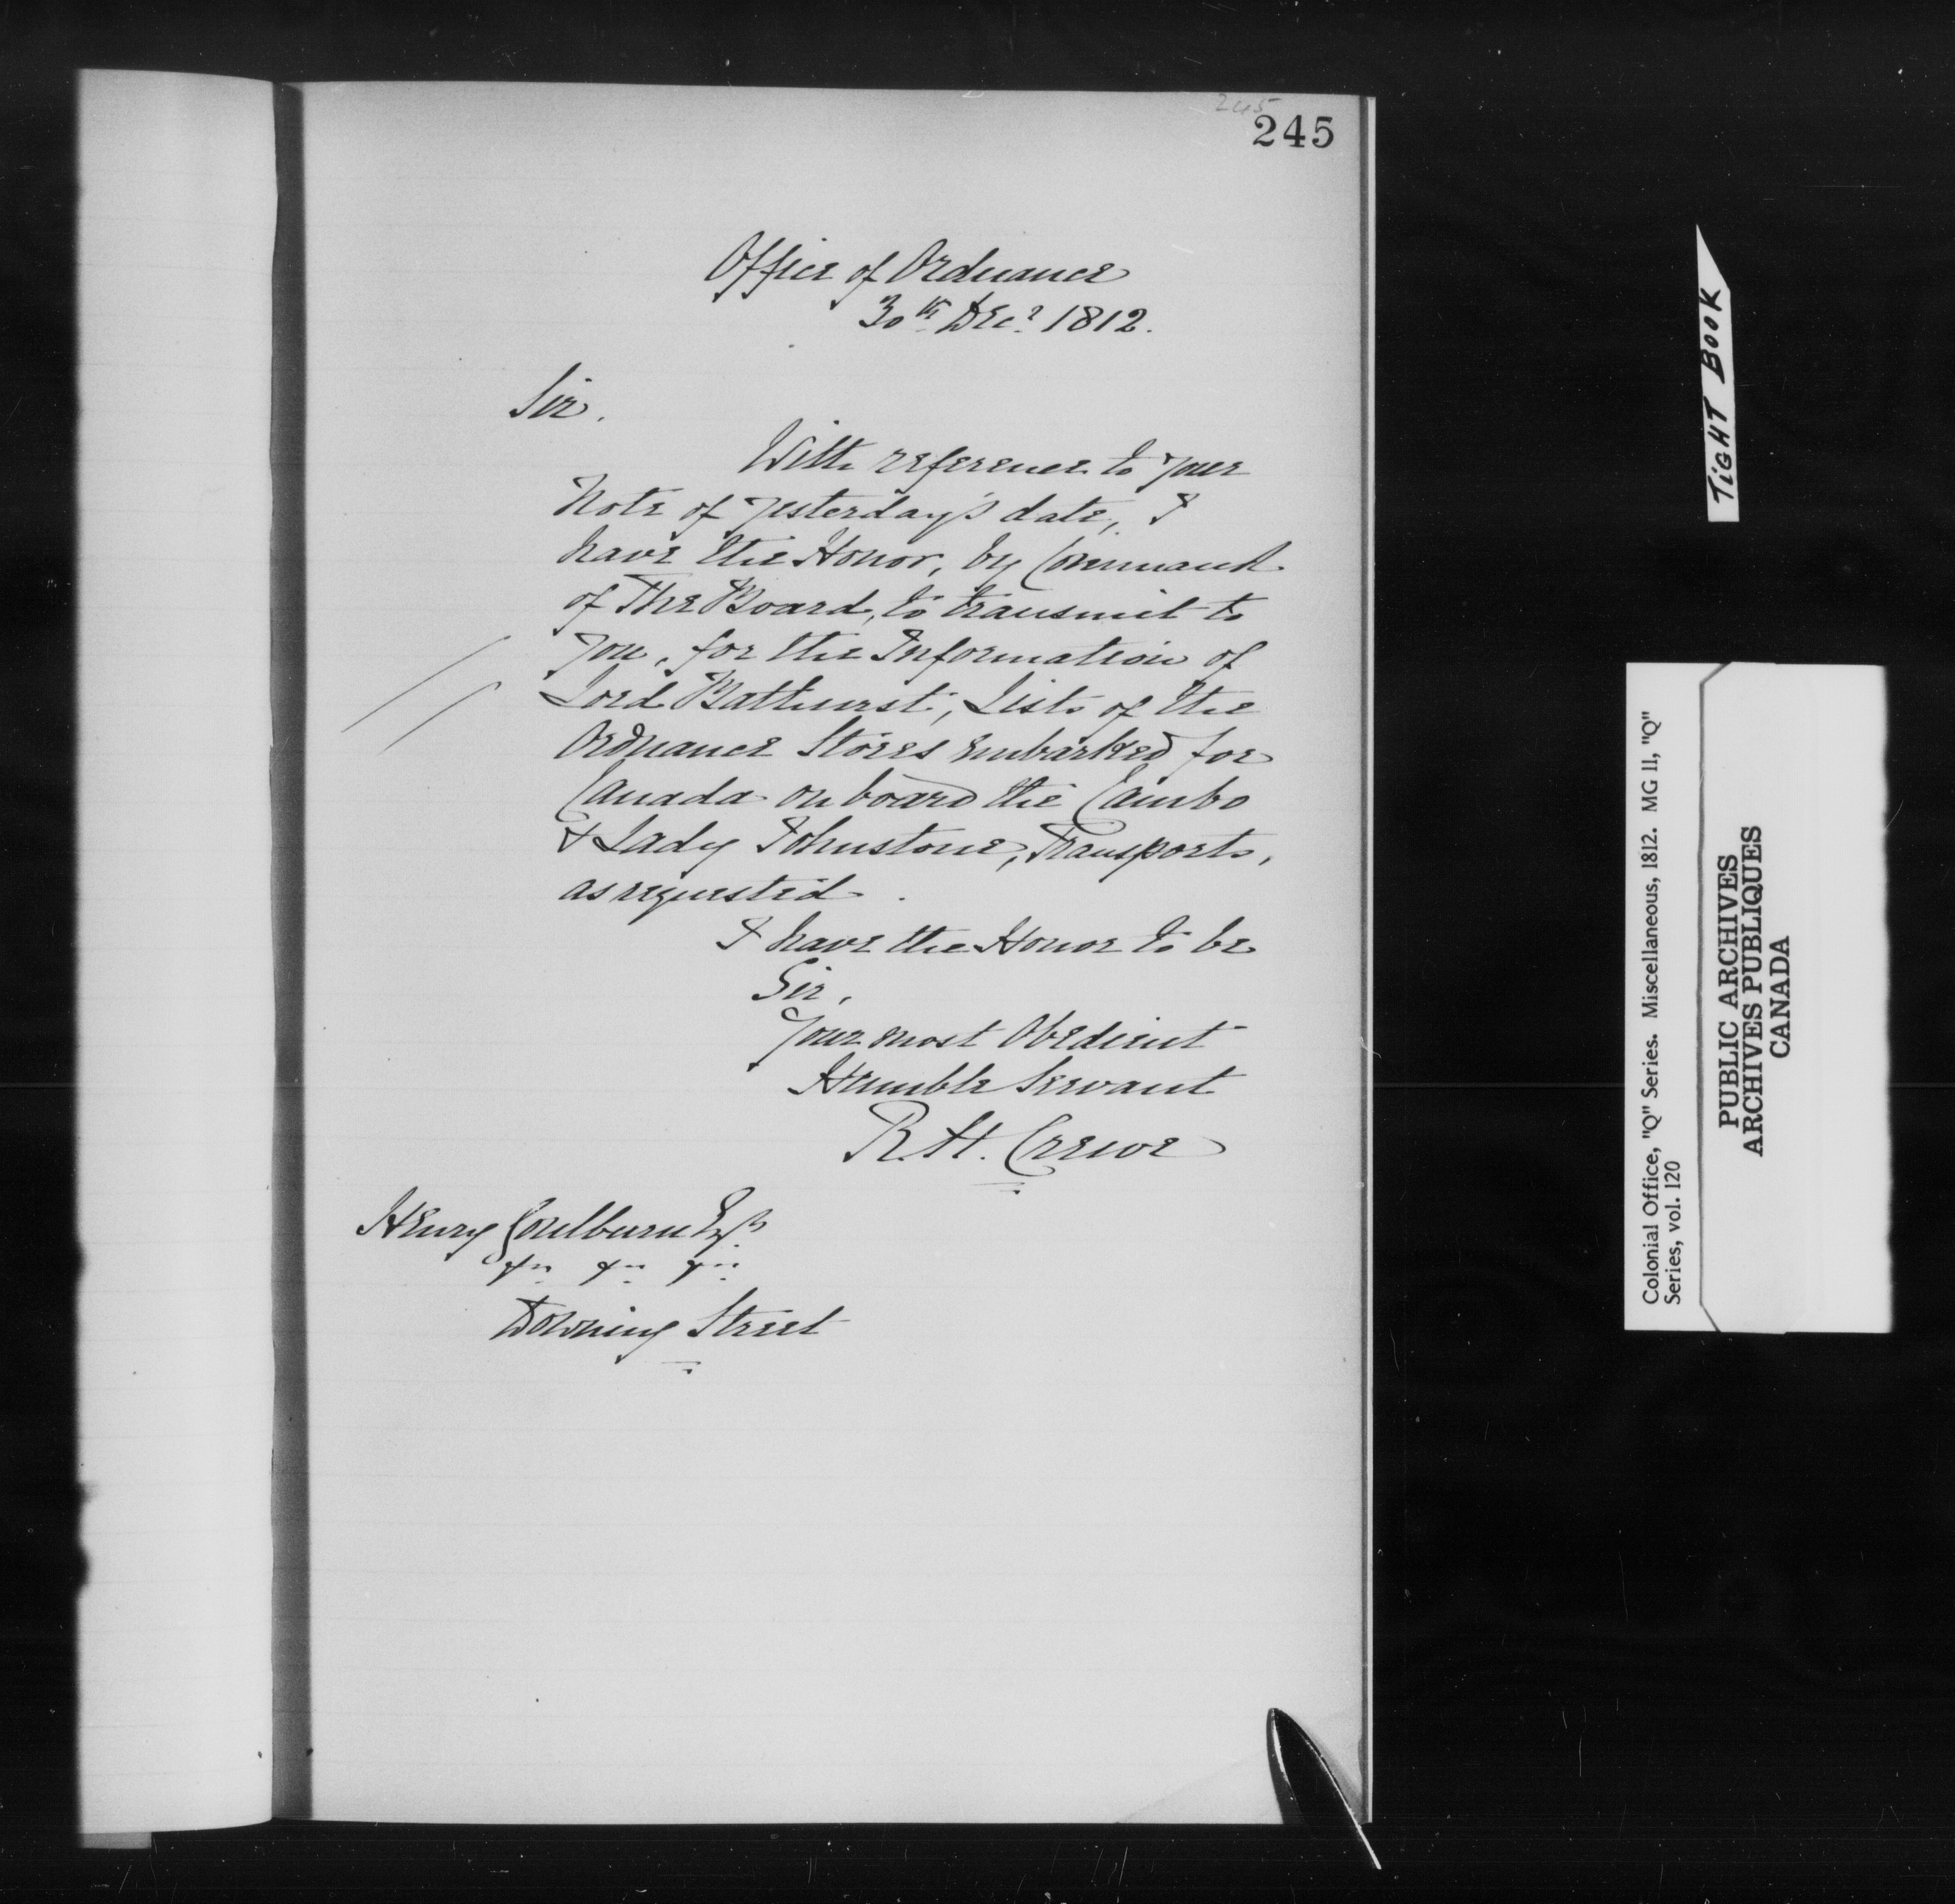 245
245
Office of Ordnance
30th Decr 1812.
Sir.
With reference to your
Note of yesterday's date, I
have the Honor, by Command
of The Board, to transmit to
you, for the Information of
Lord Bathurst, Lists of the
Ordnance Stores embarked for
Canada on board the Cambo
& Lady Johnstone, Transports,
as requested.
I have the Honor to be
Sir,
Your most Obedient
Humble Servant
R. H. Crewe
Henry Goulburn Esqr.
&c. &c. &c.
Downing Street
TIGHT BOOK
Colonial Office, "Q" Series. Miscellaneous, 1812. MG 11, "Q"
Series, vol. 120
PUBLIC ARCHIVES
ARCHIVES PUBLIQUES
CANADA